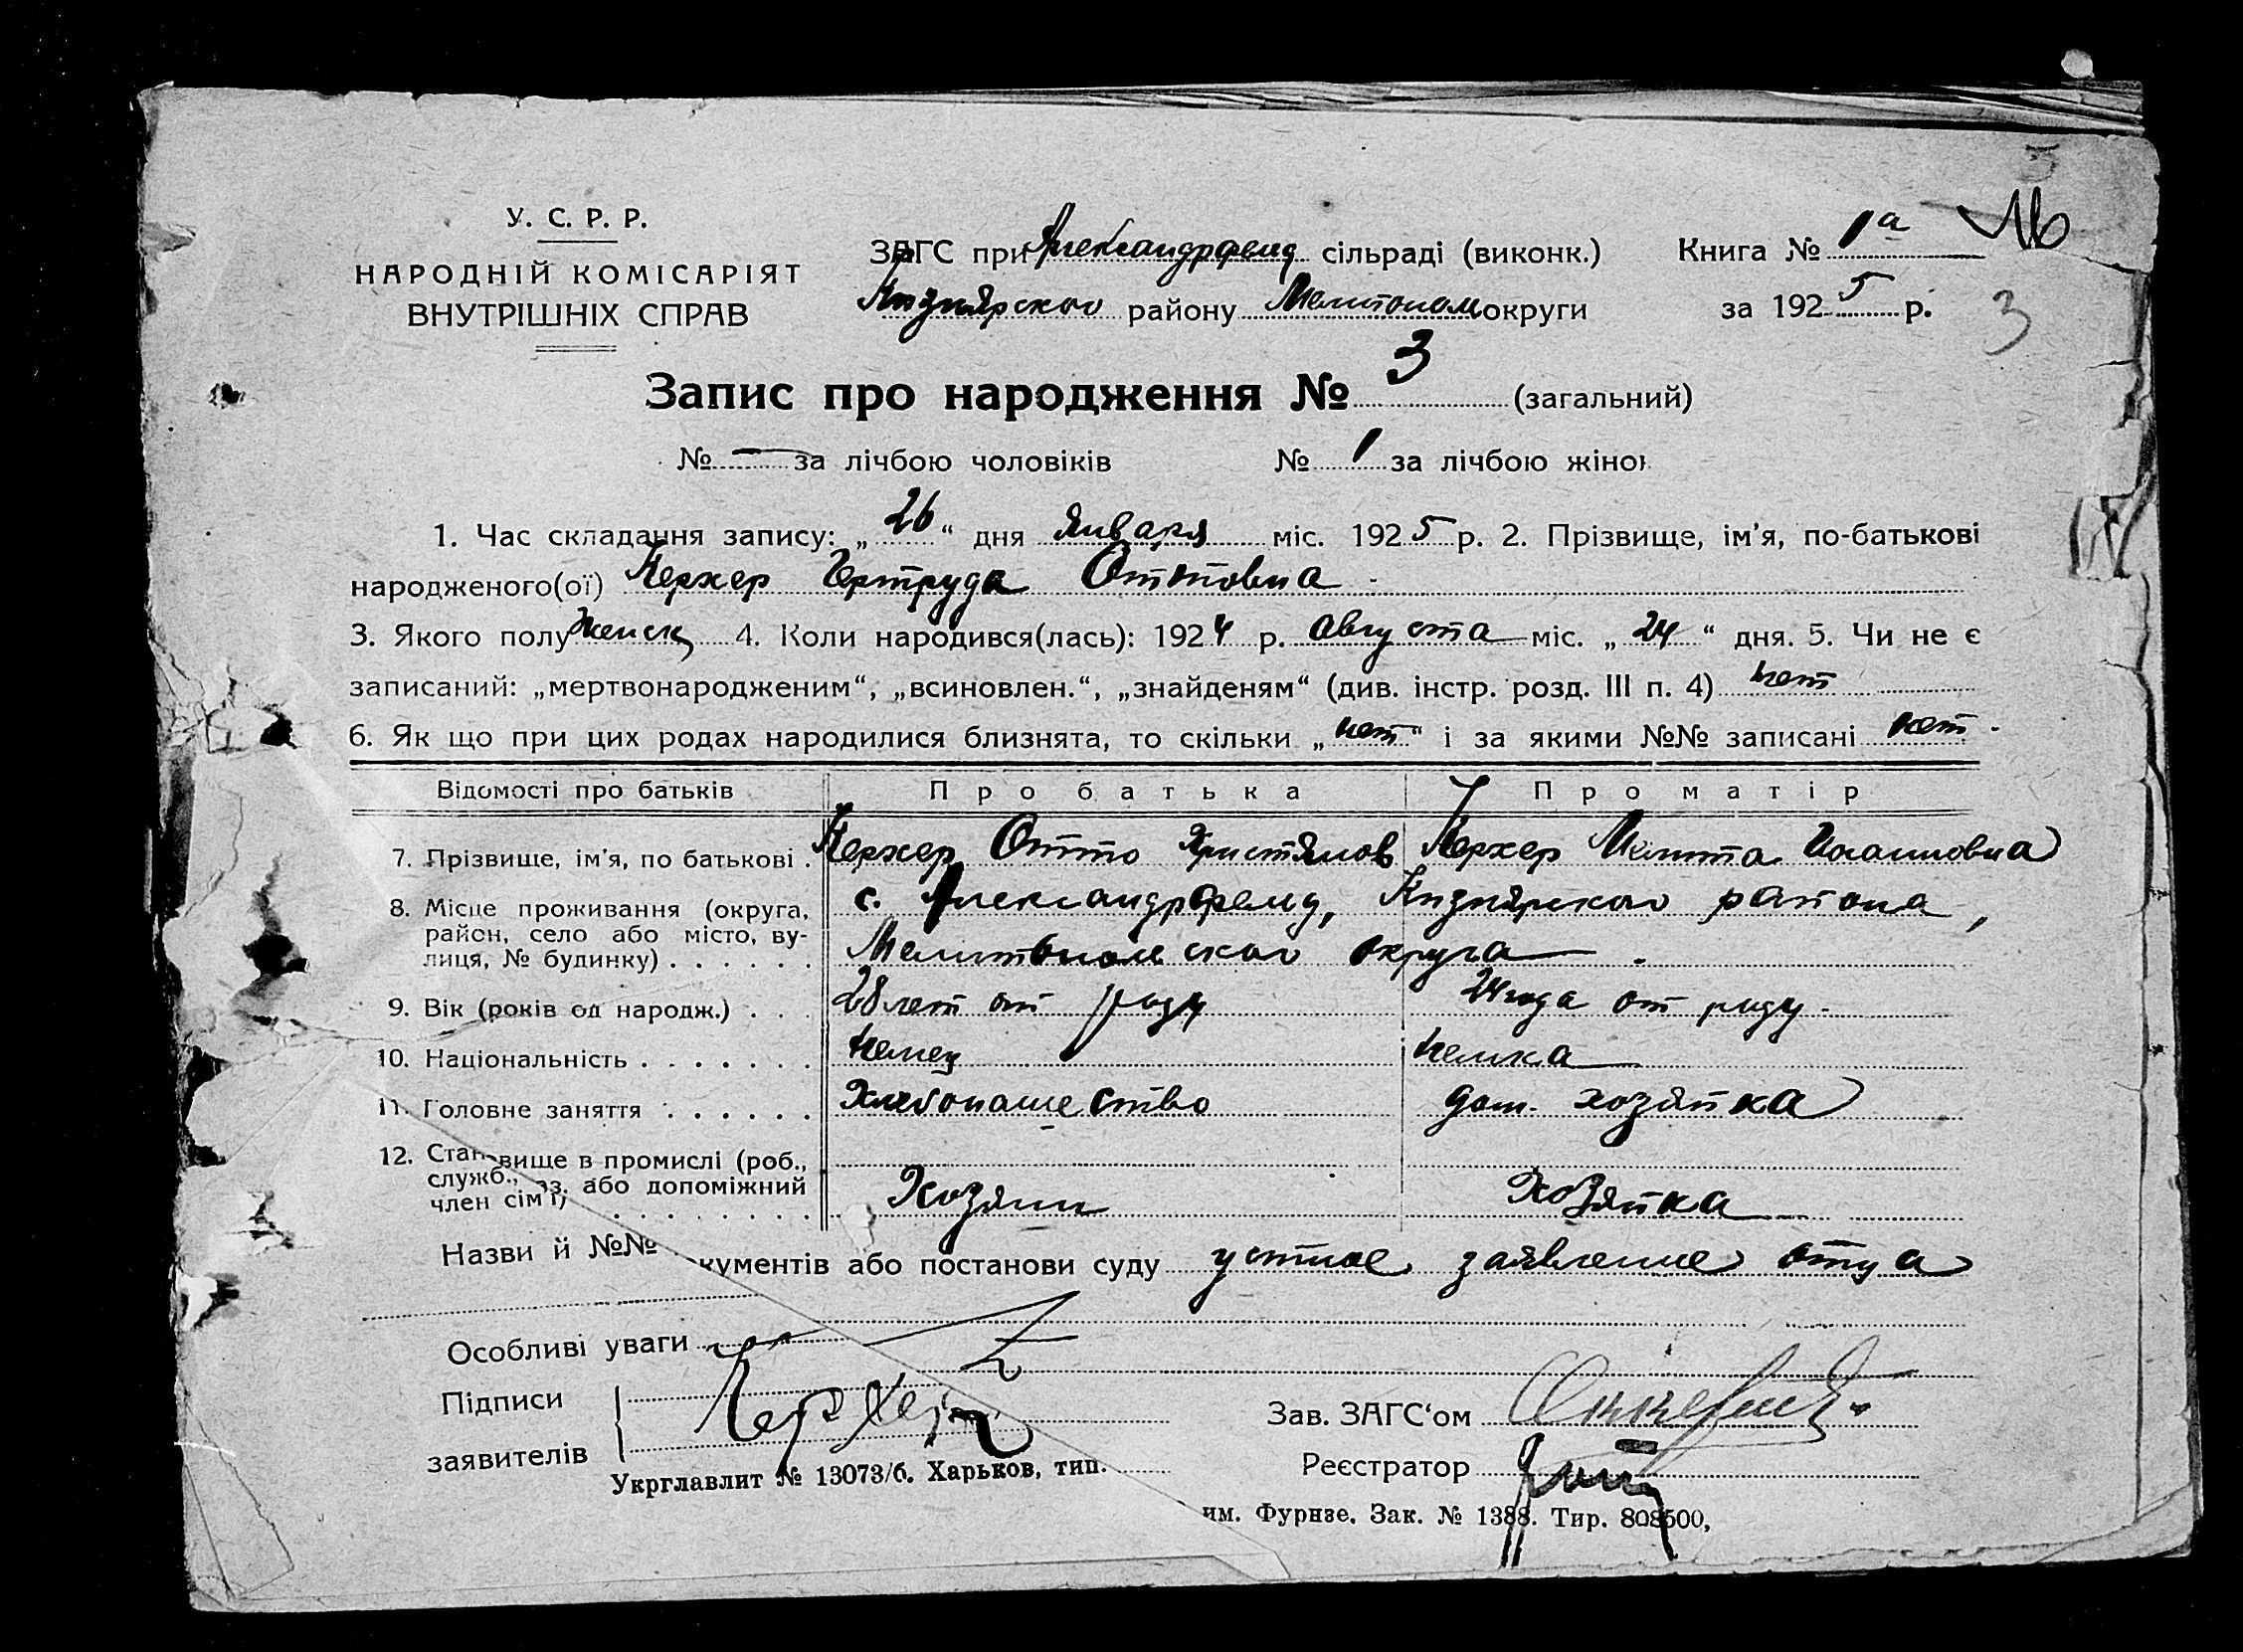 5
У. С. Р. Р.
НАРОДНІЙ КОМІСАРІЯТ
ВНУТРІШНІХ СПРАВ
ЗАГС при Александрфельд сільраді (виконк.)
Кизиярского району Мелитопол округи
Книга № 1а
за 1925 р.
3
Запис про народження № 3 (загальний)
№ — за лічбою чоловіків № 1 за лічбою жінок
1. Час складання запису: „26“ дня Января міс. 1925 р. 2. Прізвище, ім’я, по-батькові
народженого(ої) Керхер Гертруда Оттовна
3. Якого полу женск 4. Коли народився(лась): 1924 р. Августа міс. „24“ дня. 5. Чи не є
записаний: „мертвонародженим“, „всиновлен.“, „знайденям“ (див. інстр. розд. III п. 4) нет
6. Як що при цих родах народилися близнята, то скільки „нет“ і за якими №№ записані нет
Відомості про батьків Про батька Про матір
7. Прізвище, ім’я, по батькові . Керхер Отто Християнов Керхер Мелитта Иоганновна
8. Місце проживання (округа, район, село або місто, ву-
лиця, № будинку) . . . . . .
с. Александрфельд, Кизиярского района,
Мелитопольского округа
9. Вік (років од народж.) . . . 28 лет от роду 24 года от роду
10. Національність . . . . . . . Немец Немка
11. Головне заняття . . . . . . Хлебопашество дом. хозяйка
12. Становище в промислі (роб.,
служб., оз. або допоміжний
член сім’ї) . . . . . . . .
Хозяин Хозяйка
Назви й №№ документів або постанови суду устное заявление отца
Особливі уваги
Підписи
заявителів
Керхер
Зав. ЗАГС‘ом
Реєстратор
Укрглавлит № 13073/б. Харьков, тип.
им. Фурнзе. Зак. № 1388. Тир. 808500,